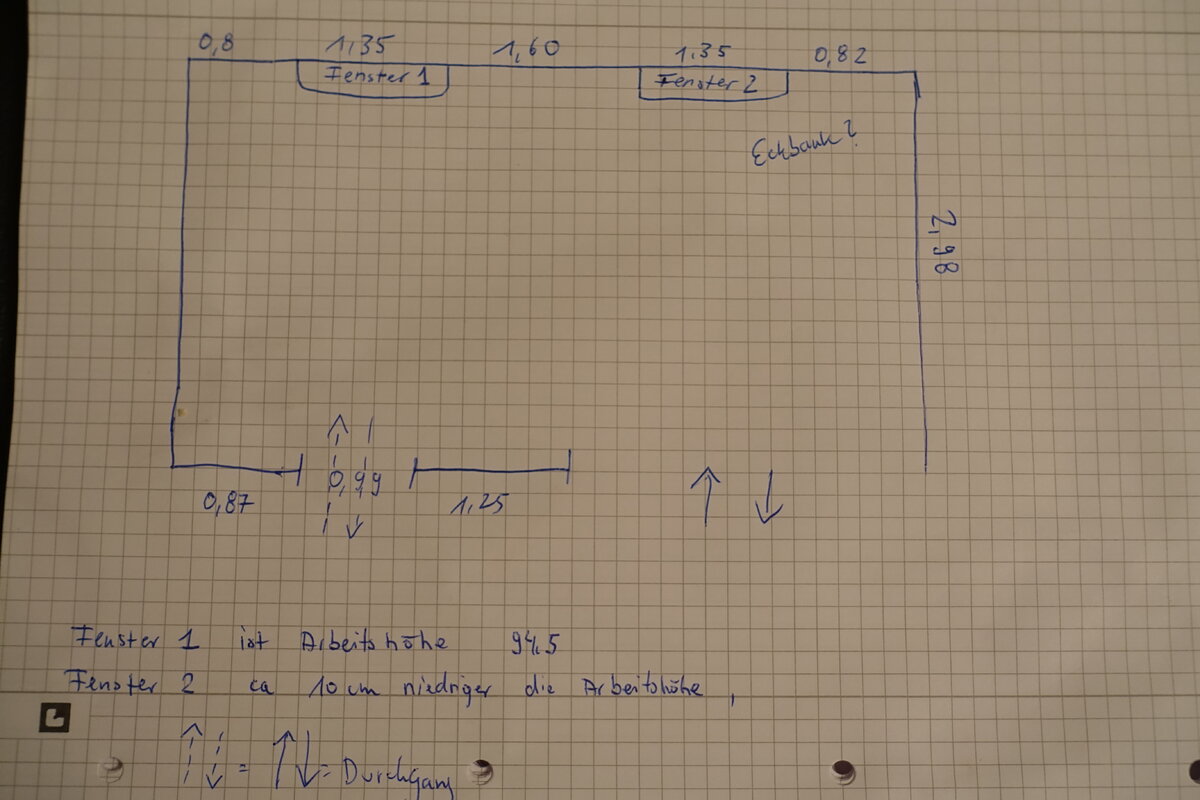 0,8 1,35 1,60 1.35 0,82
Fenster 1 Fenster 2
Eckbank?
2,98
0,99
0,87 1,25
Fenster 1 ist Arbeitshöhe 94,5
Fenster 2 ca 10 cm niedriger die Arbeitshöhe,
= = Durchgang